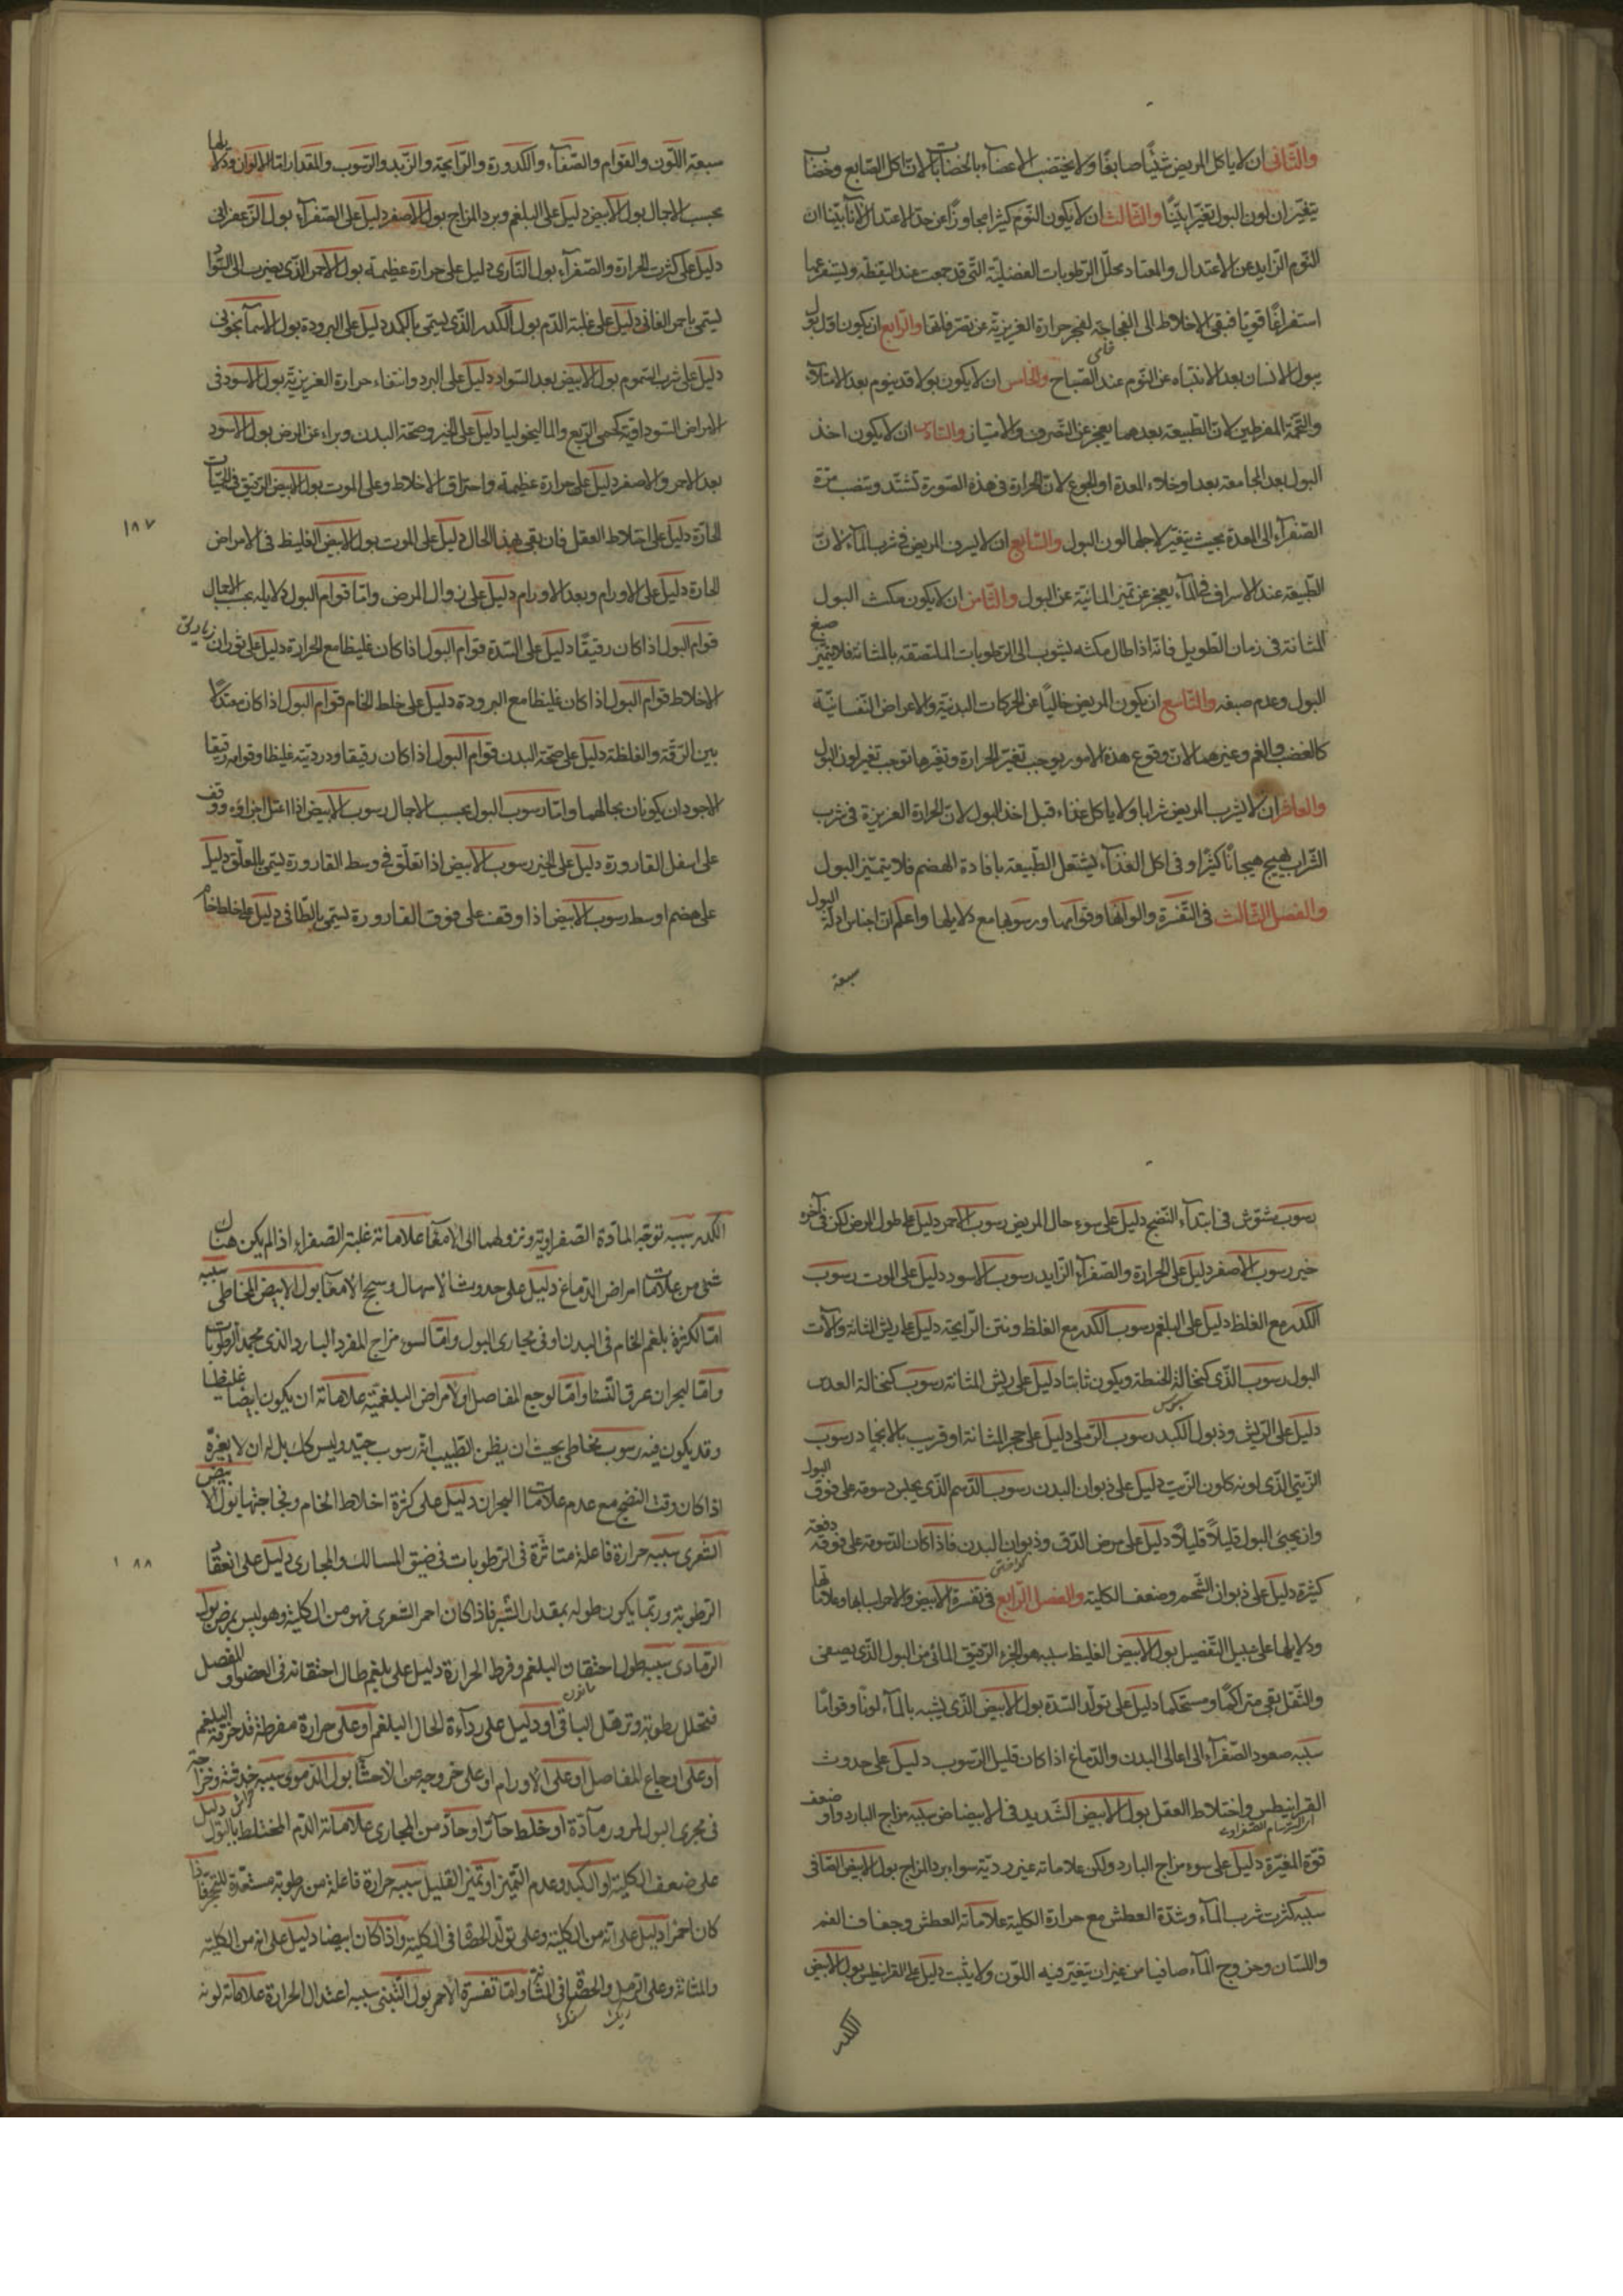 والثانى ان لا ياكل المريض شيئًا صابغًا ولا يختضب الاعضاء بالخضاب لان اكل الصابغ وخضاب
يتغيّران لون البول تغيّرا بيّنًا والثالث ان لا يكون النّوم كثيرا مجاوزًا عن حدّ الاعتدال لانّا بيّنا ان
النّوم الزايد عن الاعتدال والمعتاد محلّل الرّطوبات الفضليّة التى قد جمعت عند اليقظة ويستفرغها
استفراغًا قويا فبقى الاخلاط الى الفجاجة لعجز حرارة الغريزيّة عن تصرفاتها والرّابع ان يكون اول بول
يبول الانسان بعد الانتباه عن النّوم عند الصّباح والخامس ان لا يكون بولا قد ينوم بعد الامتلاء
والتّخمة المفرطين لانّ الطّبيعة بعدهما يعجز عن التّصرف والامتياز والسادس ان لا يكون اخذ
البول بعد المجامعة بعد اوخلاء المعدة او الجوع لانّ الحرارة فى هذه الصّورة تشتدّ وينصبّ مرّة
الصّفراء الى المعدة بحيث يتغيّر لاجلها لون البول والسّابع ان لا يسرف المريض فى شرب الماء لانّ
الطّبيعة عند الاسراف فى الماء يعجز عن تميز المائيّة عن البول والثّامن ان لا يكون مكث البول
المثانة فى زمان الطّويل فانّه اذا طال مكثه يشوب الى الرّطوبات الملتصقة بالمثانة فلا يتميّز صبغ
البول وعدم صبغه والتّاسع ان يكون المريض خاليًا عن الحركات البدنيّة والاعراض النّفسانيّة
كالغضب والغم وغيرهما لان وقوع هذه الامور يوجب تغيّر الحرارة وتغيّرها توجب تغير لون البول
والعاشر ان لا يشرب المريض شرابا ولا ياكل غذاء قبل اخذ البول لان الحرارة الغريزة فى شرب
الشّراب يهيج هيجانًا كثيرًا وفى اكل الغذاء يشتغل الطّبيعة بافادة الهضم فلا يتميّز البول
والفصل الثالث فى التّفسرة والوانها وقوامها ورسوبها مع دلايلها واعلم انّ اجناس ادلّة البول
سبعة
سبعة اللّون والقوام والصّفاء والكدورة والرّايحة والزّبد والرّسوب والمقدار امّا الالوان ودلايلها
بحسب الاجمال بول الابيض دليل على البلغم وبرد المزاج بول الاصفر دليل على الصّفراء بول الزّعفرانى
دليل على كثرت الحرارة والصّفراء بول النّارى دليل على حرارة عظيمة بول الاحمر الّذى يضرب الى السّواد
يسمّى باحمر القانى دليل على غلبة الدّم بول الكدر الّذى يسمّى باكمد دليل على البرودة بول الاسمانجونى
دليل على شرب السّموم بول الابيض بعد السّواد دليل على البرد وانتفاء حرارة الغريزيّة بول الاسود فى
الامراض السّوداويّة كحمى الرّبع والماليخوليا دليل على الخير وصحّة البدن وبراء عن المرض بول الاسود
بعد الاحمر والاصفر دليل على حرارة عظيمة واحتراق الاخلاط وعلى الموت بول الابيض الرّقيق فى الحميّات
الحادّة دليل على اختلاط العقل فان بقى بهذا الحال دليل على الموت بول الابيض الغليظ فى الامراض
الحارة دليل على الاورام وبعد الاورام دليل على زوال المرض وامّا قوام البول دلايله بحسب الاجمال
قوام البول اذا كان رقيقًا دليل على السّدة قوام البول اذا كان غليظا مع الحرارة دليل على ثوران
الاخلاط قوام البول اذا كان غليظا مع البرودة دليل على خلط الخام قوام البول اذا كان معتدلًا
بين الرّقّة والغلظة دليل على صحّة البدن قوام البول اذا كان رقيقا ودرديّته غليظا وقوامه رقيقا
الاجود ان يكونان بحالهما وامّا رسوب البول بحسب الاجمال رسوب الابيض اذا اعتدل اجزاؤه ووقف
على اسفل القارورة دليل على الخير رسوب الابيض اذا تعلّق فى وسط القارورة يسمّى بالمعلّق دليل
على هضم اوسط رسوب الابيض اذا وقف على فوق القارورة يسمّى بالطّافى دليل على خلط خام
١٨٧
رسوب مشوّش فى ابتداء النّضج دليل على سوء حال المريض رسوب الاحمر دليل على طول المرض لكن فى آخره
خير رسوب الاصفر دليل على الحرارة والصّفراء الزّايد رسوب الاسود دليل على الموت رسوب
الكدر مع الغلظ دليل على البلغم رسوب الكدر مع الغلظ ونتن الرّايحة دليل على ريش المثانة والآت
البول رسوب الّذى كنخالة الحنطة ويكون ثابتا دليل على ريش المثانة رسوب كنخالة العدس
دليل على الرّيش وذبول الكبد رسوب الرّملى دليل على حجر المثانة او قريب بالانجماد رسوب
الزّيتى الّذى لونه كلون الزّيت دليل على ذبوان البدن رسوب الدّسم الّذى يجلس دسومة على فوق البول
وان يجئ البول قليلًا قليلًا دليل على مرض الدّق وذبوان البدن فاذا كان الدّسومة على فوقه دفعة
كثيرة دليل على ذبوان الشّحم وضعف الكلية والفصل الرّابع فى تفسرة الابيض والاحمر اسبابها وعلاماتها
ودلايلها على سبيل التّفصيل بول الابيض الغليظ سببه هو الجزء الرّقيق المائى من البول الّذى يصفى
والثّفل بقى متراكمًا ومستحكما دليل على تولّد السّدة بول الابيض الّذى يشبه بالماء لونًا وقوامًا
سببه صعود الصّفراء الى اعالى البدن والدّماغ اذا كان قليل الرّسوب دليل على حدوث
القرانيطس واختلاط العقل بول الابيض الشّديد فى الابيضاض سببه مزاج البارد واو ضعف
قوّة المغيّرة دليل على سوء مزاج البارد ولكن علاماته غير رديّة سواء برد المزاج بول الابيض الصّافى
سببه كثرت شرب الماء وشدّة العطش مع حرارة الكلية علاماته العطش وجفاف الفم
واللّسان وخروج الماء صافيا من غير ان يتغيّر فيه اللّون ولا يثبت دليل على القرانيطس بول الابيض
الكدر
الكدر سببه توجّه المادّة الصّفراوية ونزولها الى الامعاء علاماته غلبة الصّفراء اذا لم يكن هناك
شئ من علامات امراض الدّماغ دليل على حدوث الاسهال وسحج الامعاء بول الابيض المخاطى سببه
امّا كثرة بلغم الخام فى البدن او فى مجارى البول وامّا لسوء مزاج المفرد البارد الّذى يجمد الرّطوبات
وامّا لبحران عرق النّسا وامّا لوجع المفاصل او لامراض البلغميّة علاماته ان يكون ابيضا غليظا
وقد يكون فيه رسوب مخاطى بحيث ان يظن الطّبيب انّه رسوب جيّد وليس كك بل له ان لا يغرّه
اذا كان وقت النضج مع عدم علامات البحران دليل على كثرة اخلاط الخام وفجاجتها بول الابيض
الشّعرى سببه حرارة فاعلة متاثّرة فى الرّطوبات فى ضيق المسالك والمجارى دليل على انعقاد
الرّطوبة وربّما يكون طوله بمقدار الشّبر فاذا كان احمر الشّعرى فهو من الكلية وهو ليس بمرض بول
الرّمادى سببه طول احتقان البلغم وفرط الحرارة دليل على بلغم طال احتقانه فى العضو او المفصل
فتحلل رطوبة وترهل الباقى او دليل على رداءة الحال البلغم او على حرارة مفرطة قد حرقة البلغم
او على اوجاع المفاصل او على الاورام او على خروجه عن الاحشا بول الدّموى سببه خدشة وجراحة
فى مجرى البول لمرور مادّة او خلط حارّ او حادّ من المجارى علاماته الدّم المختلط بالبول دليل
على ضعف الكلية او الكبد وعدم التّميز او تميز القليل سببه حرارة فاعلة من رطوبة مستعدّة للتّحجّر فاذا
كان احمرا دليل على انّه من الكلية وعلى تولّد الحصاة فى الكلية واذا كان ابيضا دليل على انه من الكلية
والمثانة وعلى الرّمل والحصاة فى المثانة وامّا تفسرة الاحمر بول التّبنى سببه اعتدال الحرارة علاماته لونه
ريك سنك
١٨٨